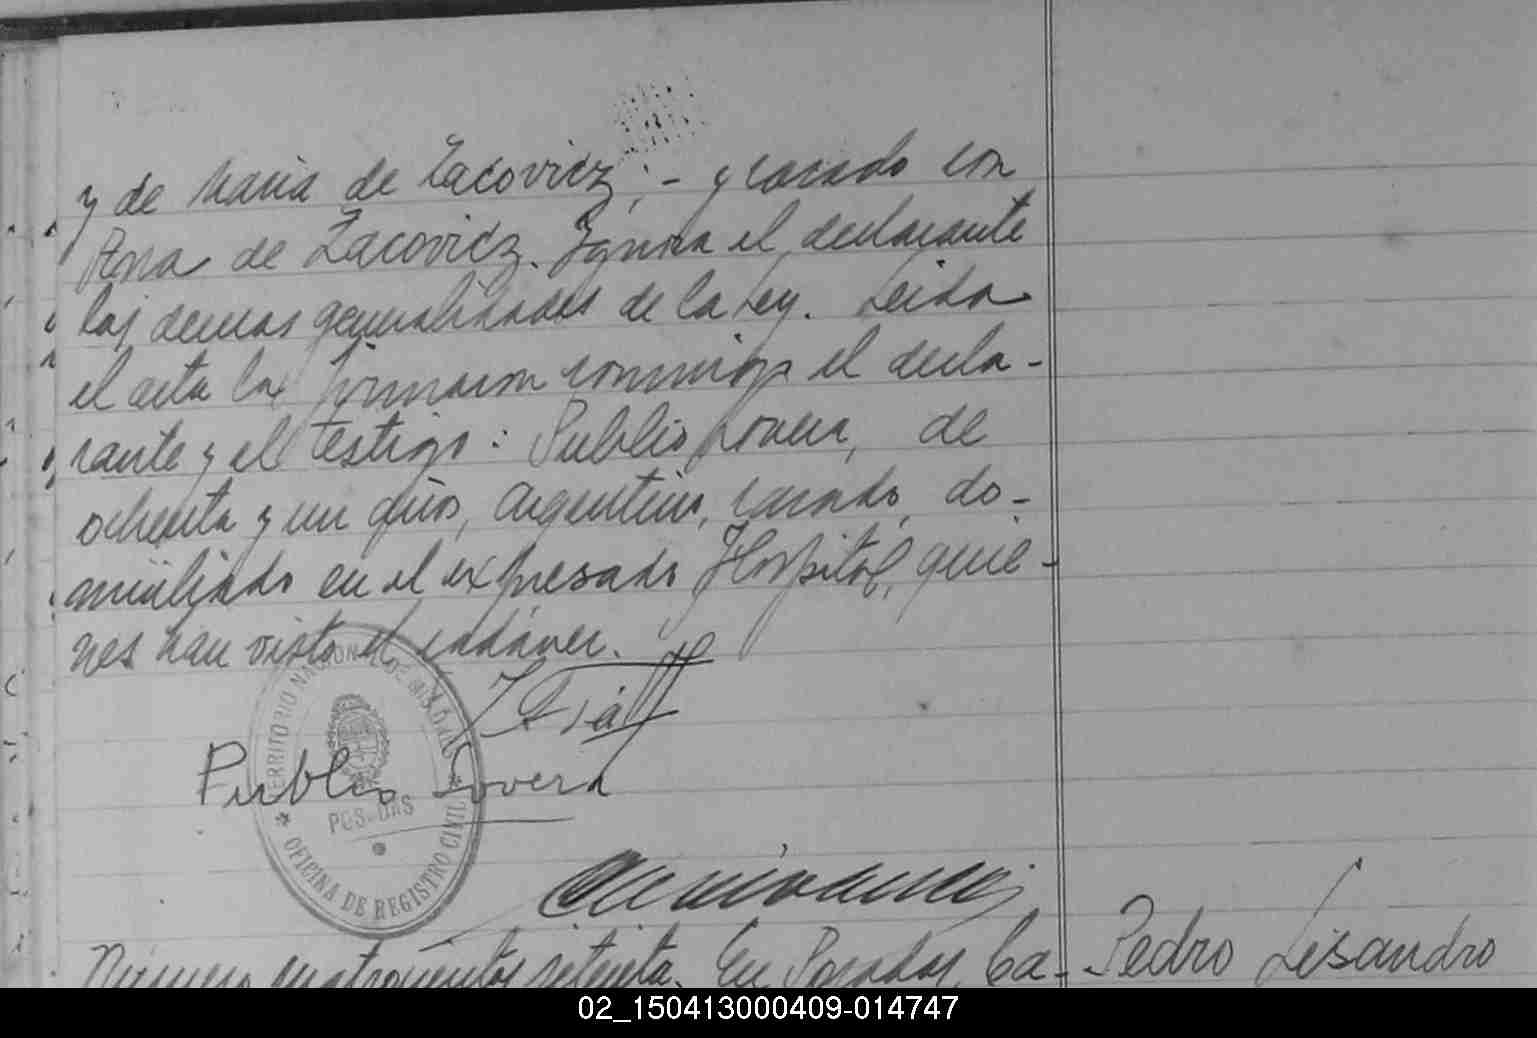 y de Maria de Zacovicz; - y casado con
Rosa de Zacovicz. Ignora el declarante
las demas generalidades de la Ley. Leida
el acta la firmaron conmigo el decla-
rante y el testigo: Publio Lovera, de
ochenta y un años, Argentino, casado, do-
miciliado en el expresado Hospital, quie-
nes han visto el cadaver.
TERRITORIO NACIONAL DE MISIONES
Publio Lovera
POSADAS
OFICINA DE REGISTRO CIVIL
Número cuatrocientos setenta. En Posadas, Ca- Pedro Lisandro
02_150413000409-014747